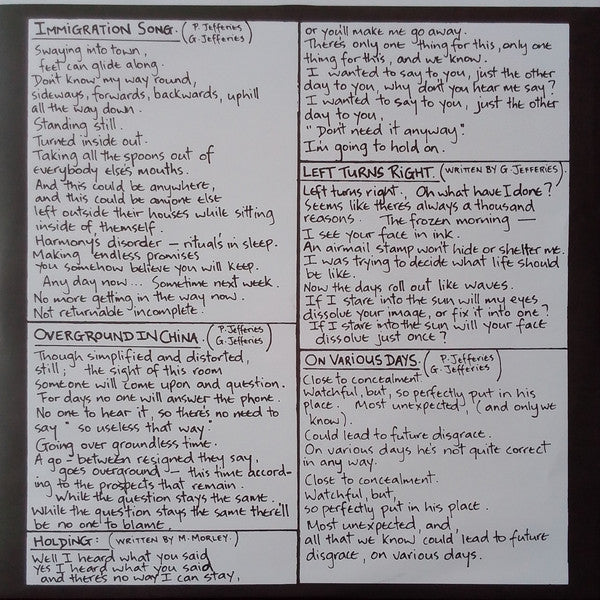 IMMIGRATION SONG. (P. Jefferies
G. Jefferies)
Swaying into town,
feet can glide along.
Don't know my way round,
sideways, forwards, backwards, uphill
all the way down.
Standing still.
Turned inside out.
Taking all the spoons out of
everybody else's mouths.
And this could be anywhere,
and this could be anyone else
left outside their houses while sitting
inside of themself.
Harmony's disorder — rituals in sleep.
Making endless promises
you somehow believe you will keep.
Any day now... Sometime next week.
No more getting in the way now.
Not returnable incomplete.
OVERGROUND IN CHINA. (P. Jefferies
G. Jefferies)
Though simplified and distorted,
still; the sight of this room
someone will come upon and question.
For days no one will answer the phone.
No one to hear it, so there's no need to
say "so useless that way"
Going over groundless time.
A go-between resigned they say,
goes overground — this time accord-
ing to the prospects that remain.
While the question stays the same.
While the question stays the same there'll
be no one to blame.
HOLDING: (WRITTEN BY M. MORLEY.)
Well I heard what you said
yes I heard what you said
and there's no way I can stay,
or you'll make me go away.
There's only one thing for this, only one
thing for this, and we know.
I wanted to say to you, just the other
day to you, why don't you hear me say?
I wanted to say to you, just the other
day to you,
"Don't need it anyway."
I'm going to hold on.
LEFT TURNS RIGHT. (WRITTEN BY G. JEFFERIES).
Left turns right. Oh what have I done?
Seems like there's always a thousand
reasons. The frozen morning —
I see your face in ink.
An airmail stamp won't hide or shelter me.
I was trying to decide what life should
be like.
Now the days roll out like waves.
If I stare into the sun will my eyes
dissolve your image, or fix it into one?
If I stare into the sun will your face
dissolve just once?
ON VARIOUS DAYS. (P. Jefferies
G. Jefferies)
Close to concealment.
Watchful, but, so perfectly put in his
place. Most unexpected (and only we
know).
Could lead to future disgrace.
On various days he's not quite correct
in any way.
Close to concealment.
Watchful, but,
so perfectly put in his place.
Most unexpected, and,
all that we know could lead to future
disgrace, on various days.